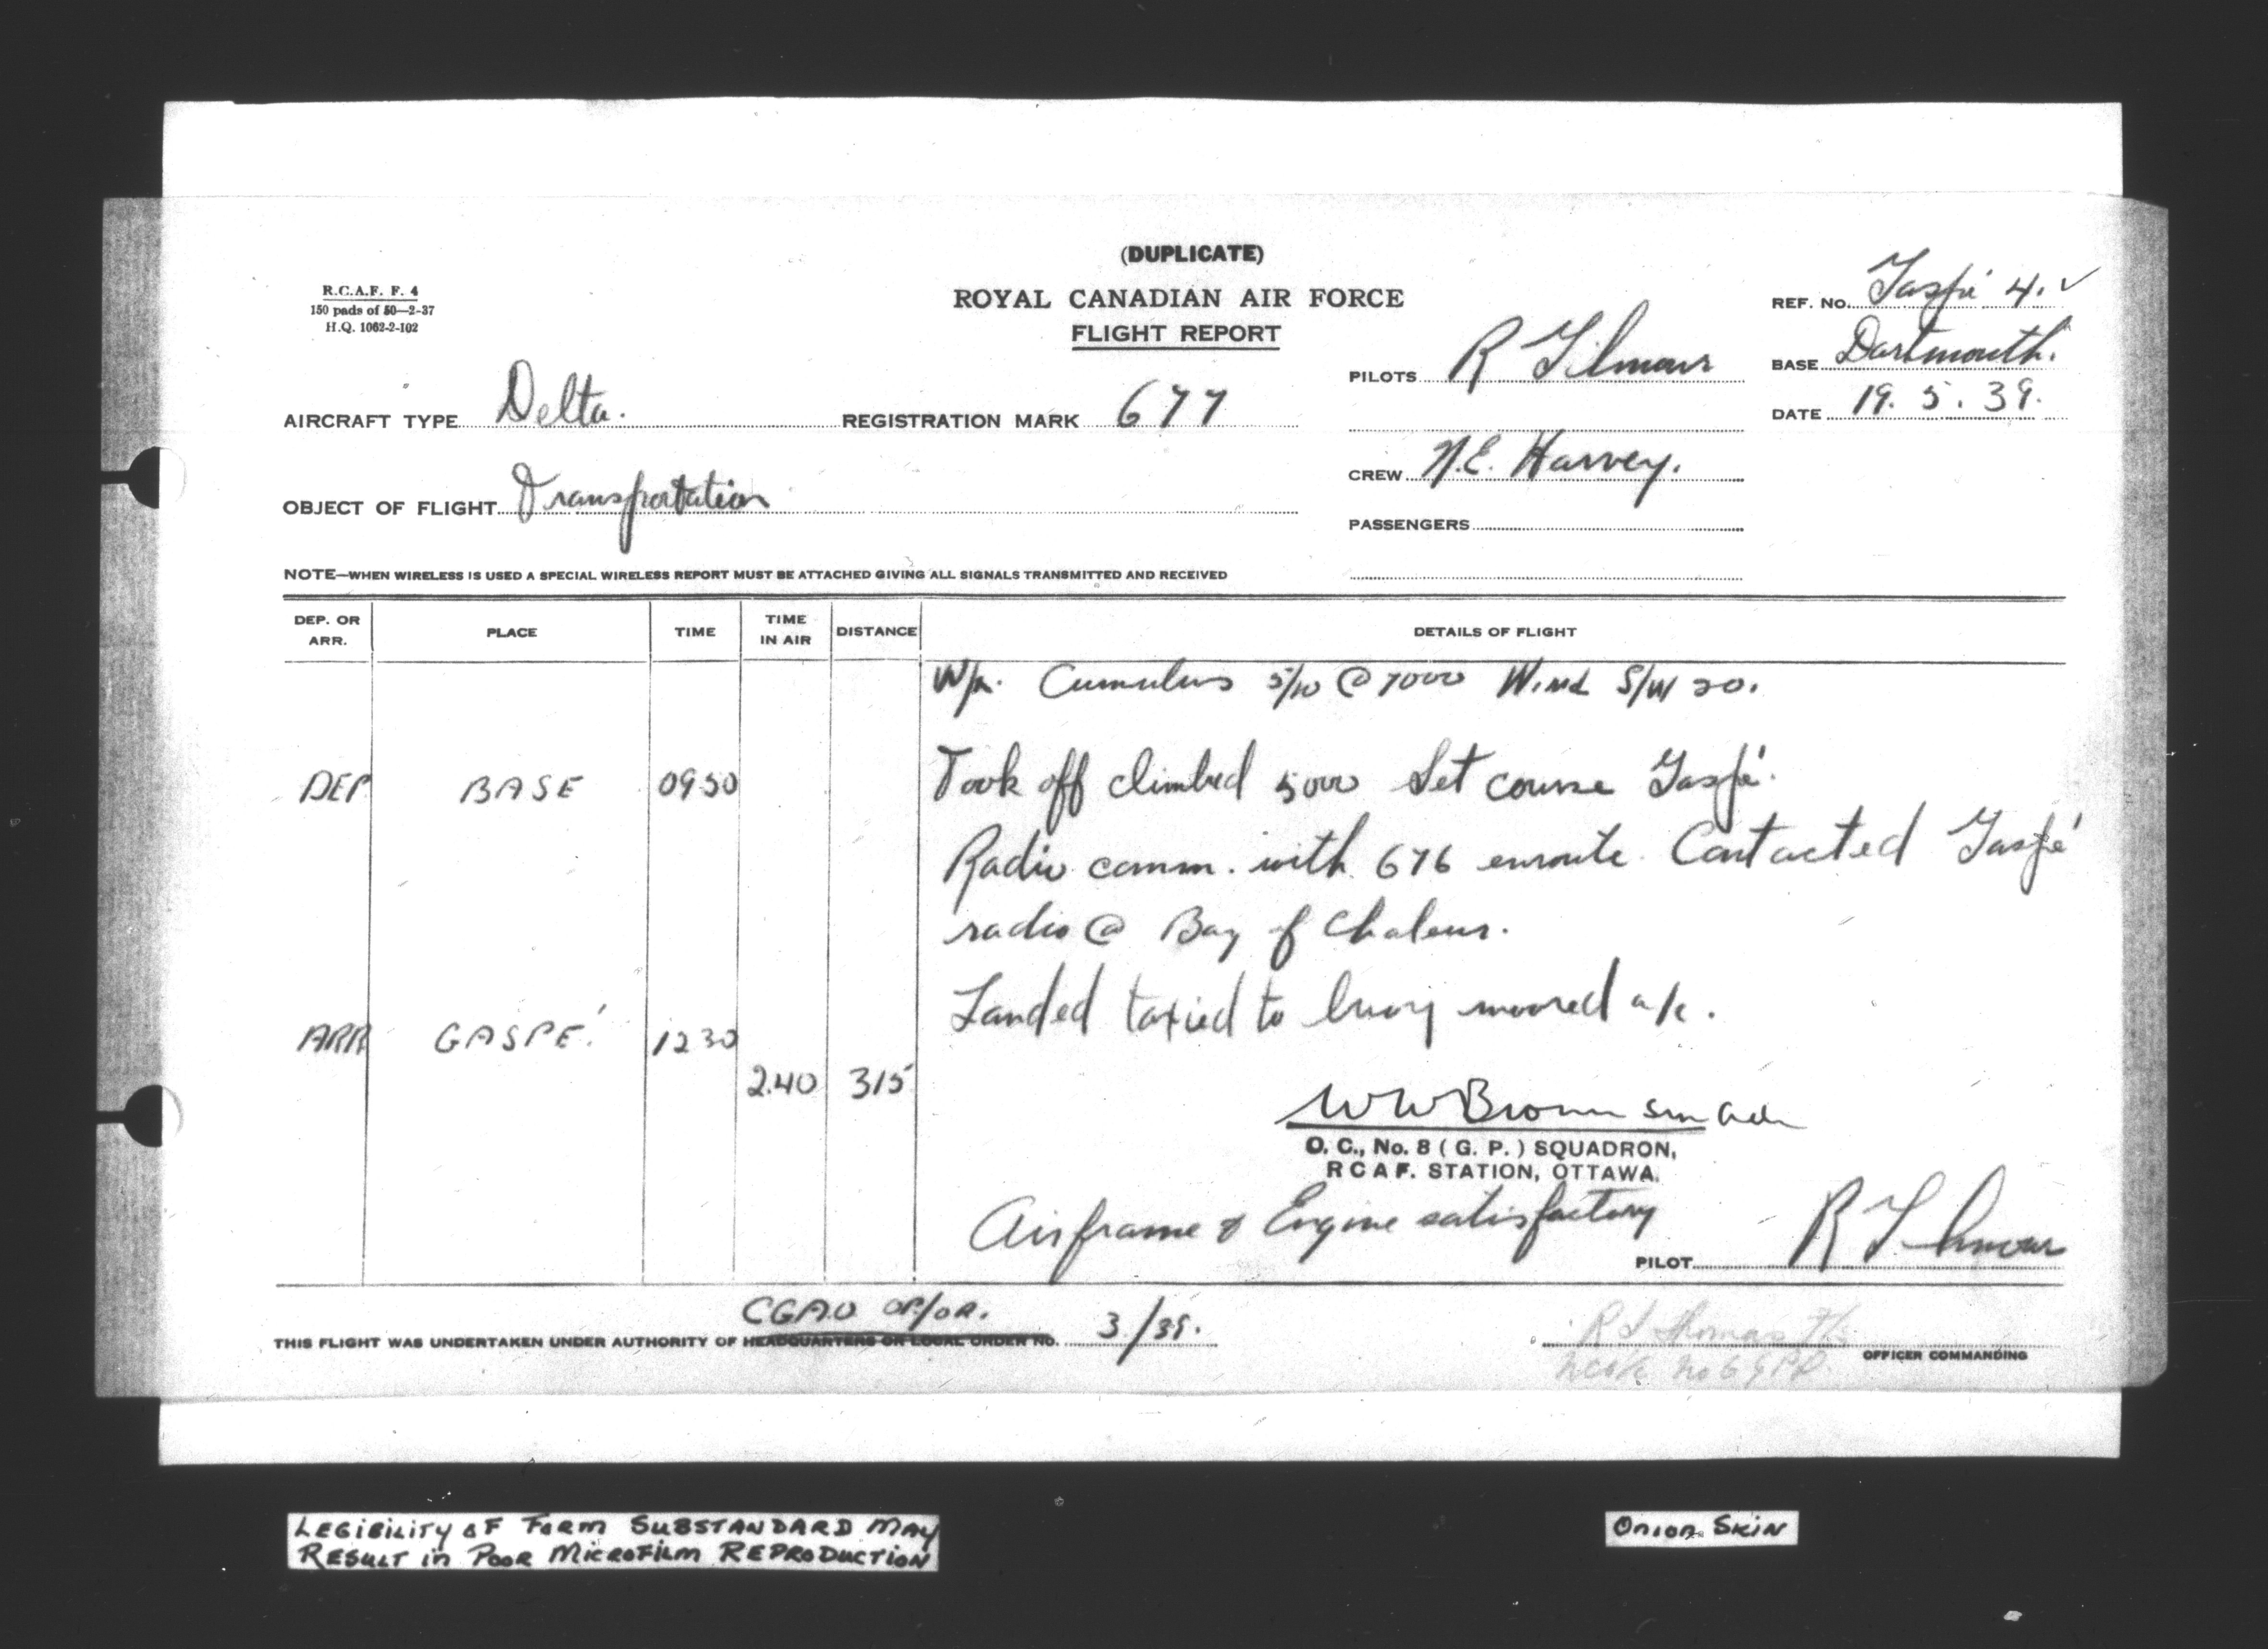 (DUPLICATE)
ROYAL CANADIAN AIR FORCE
FLIGHT REPORT
R.C.A.F. F. 4
150 pads of 50—2-37
H.Q. 1062-2-102
REF. No. Gaspé 4. ✓
BASE Dartmouth.
DATE 19. 5. 39.
PILOTS R Gilmour
AIRCRAFT TYPE Delta. REGISTRATION MARK 677
CREW N.E. Harvey.
OBJECT OF FLIGHT Transportation
PASSENGERS
NOTE—WHEN WIRELESS IS USED A SPECIAL WIRELESS REPORT MUST BE ATTACHED GIVING ALL SIGNALS TRANSMITTED AND RECEIVED
DEP. OR ARR. PLACE TIME TIME IN AIR DISTANCE DETAILS OF FLIGHT
Cumulus 5/10 @ 7000 Wind S/W 20.
DEP BASE 0950 Took off climbed 5000 Set course Gaspé.
Radio comm. with 676 enroute. Contacted Gaspé
radio @ Bay of Chaleur.
ARR GASPÉ. 1230 Landed taxied to buoy moored a/c.
2.40 315
WW Brown
O. C., No. 8 ( G. P. ) SQUADRON,
R C A F. STATION, OTTAWA.
Airframe & Engine satisfactory
PILOT R Gilmour
CGAO OP/OR.
THIS FLIGHT WAS UNDERTAKEN UNDER AUTHORITY OF HEADQUARTERS OR LOCAL ORDER NO. 3/39.
OFFICER COMMANDING
LEGIBILITY OF FORM SUBSTANDARD MAY
RESULT in POOR MICROFILM REPRODUCTION
ONION SKIN